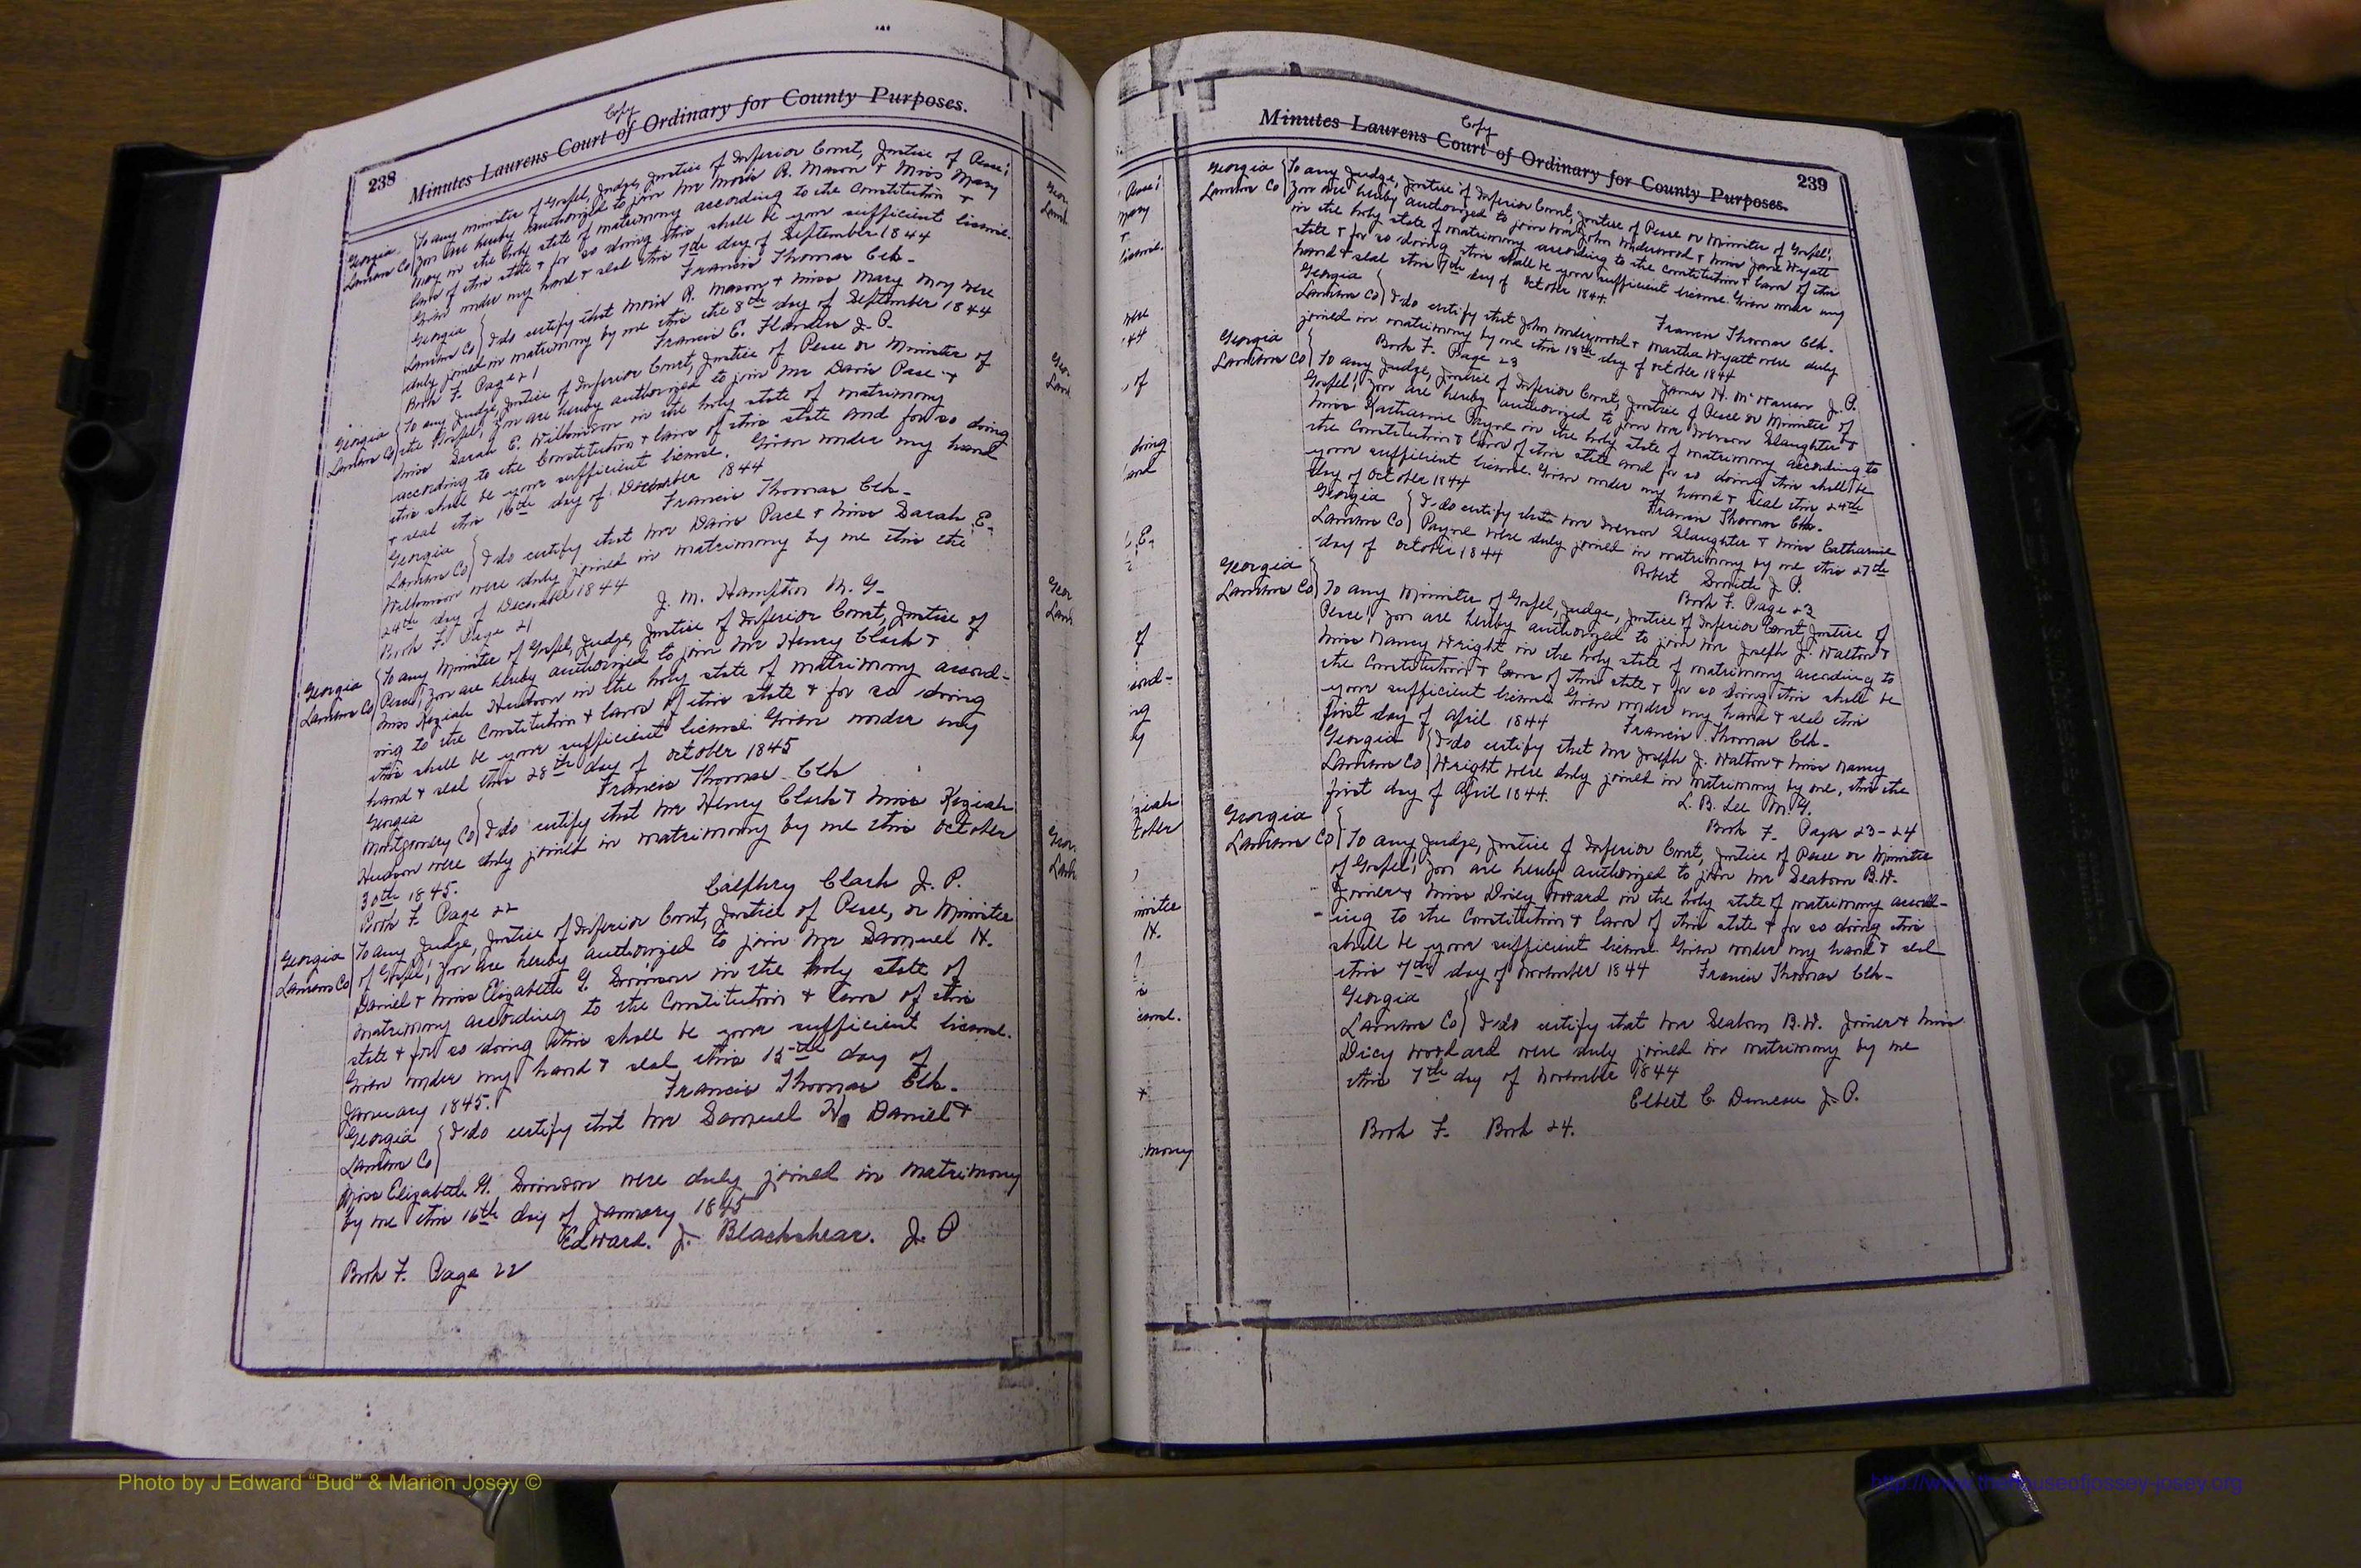 Copy
238 Minutes Laurens Court of Ordinary for County Purposes.
Georgia
Laurens Co
To any minister of Gospel, Judge, Justice of Inferior Court, Justice of Peace!
You are hereby authorized to join Mr R. Mason & Miss Mary
May in the holy state of matrimony according to the constitution &
laws of this state & for so doing this shall be your sufficient license.
Given under my hand & seal this 7th day of September 1844
Francis Thomas Clk.
Georgia
Laurens Co
I do certify that R. Mason & Miss Mary May were
duly joined in matrimony by me this the 8th day of September 1844
Francis E. Flanders J. P.
Book F. Page 21
Georgia
Laurens Co
To any Judge, Justice of Inferior Court, Justice of Peace or Minister of
the Gospel; You are hereby authorized to join Mr Davis Pace &
Miss Sarah E. Wilkinson in the holy state of matrimony
according to the Constitution & laws of this state and for so doing
this shall be your sufficient license. Given under my hand
& seal this 16th day of December 1844
Francis Thomas Clk.
Georgia
Laurens Co
I do certify that Mr Davis Pace & Miss Sarah E.
Wilkinson were duly joined in matrimony by me this the
24th day of December 1844
J. M. Hampton M. G.
Book F. Page 21
Georgia
Laurens Co
To any Minister of Gospel, Judge, Justice of Inferior Court, Justice of
Peace! You are hereby authorized to join Mr Henry Clark &
Miss Keziah Hudson in the holy state of matrimony accord-
ing to the Constitution & laws of this state & for so doing
this shall be your sufficient license. Given under my
hand & seal this 28th day of October 1845
Francis Thomas Clk
Georgia
Montgomery Co
I do certify that Mr Henry Clark & Miss Keziah
Hudson were duly joined in matrimony by me this October
30th 1845.
Clark J. P.
Book F. Page 22
Georgia
Laurens Co
To any Judge, Justice of Inferior Court, Justice of Peace, or Minister
of Gospel; You are hereby authorized to join Mr Samuel H.
Daniel & Miss Elizabeth G. Swinson in the holy state of
matrimony according to the Constitution & laws of this
state & for so doing this shall be your sufficient license.
Given under my hand & seal this 15th day of
January 1845.
Francis Thomas Clk.
Georgia
Laurens Co
I do certify that Mr Samuel H. Daniel &
Miss Elizabeth G. Swinson were duly joined in matrimony
by me this 16th day of January 1845
Edward. J. Blackshear. J. P
Book F. Page 22
Copy
Minutes Laurens Court of Ordinary for County Purposes. 239
Georgia
Laurens Co
To any Judge, Justice of Inferior Court, Justice of Peace or Minister of Gospel!
You are hereby authorized to join Mr John Underwood & Miss Jane Wyatt
in the holy state of matrimony according to the constitution & laws of this
state & for so doing this shall be your sufficient license. Given under my
hand & seal this 7th day of October 1844
Francis Thomas Clk.
Georgia
Laurens Co
I do certify that John Underwood & Martha Wyatt were duly
joined in matrimony by me this 18th day of October 1844
James H. J. P.
Book F. Page 23
Georgia
Laurens Co
To any Judge, Justice of Inferior Court, Justice of Peace or Minister of
Gospel! You are hereby authorized to join Mr Slaughter &
Miss Katharine Payne in the holy state of matrimony according to
the Constitution & laws of this state and for so doing this shall be
your sufficient license. Given under my hand & seal this 24th
day of October 1844
Francis Thomas Clk.
Georgia
Laurens Co
I do certify that Mr Slaughter & Miss Catharine
Payne were duly joined in matrimony by me this 27th
day of October 1844
Robert Smith J. P.
Book F. Page 23
Georgia
Laurens Co
To any Minister of Gospel, Judge, Justice of Inferior Court, Justice of
Peace! You are hereby authorized to join Mr Joseph J. Walton &
Miss Nancy Wright in the holy state of matrimony according to
the Constitution & laws of this state & for so doing this shall be
your sufficient license. Given under my hand & seal this
first day of April 1844
Francis Thomas Clk.
Georgia
Laurens Co
I do certify that Mr Joseph J. Walton & Miss Nancy
Wright were duly joined in matrimony by me, this the
first day of April 1844.
L. B. Lee M. G.
Book F. Pages 23-24
Georgia
Laurens Co
To any Judge, Justice of Inferior Court, Justice of Peace or Minister
of Gospel! You are hereby authorized to join Mr Seaborn B.W.
Joiner & Miss Dicey Woodard in the holy state of matrimony accord-
ing to the Constitution & laws of this state & for so doing this
shall be your sufficient license. Given under my hand & seal
this 7th day of November 1844 Francis Thomas Clk.
Georgia
Laurens Co
I do certify that Mr Seaborn B.W. Joiner & Miss
Dicey Woodard were duly joined in matrimony by me
this 7th day of November 1844
Elbert C. Duncan J. P.
Book F. Book 24.
Photo by J Edward “Bud” & Marion Josey ©
http://www.thehouseofjossey-josey.org